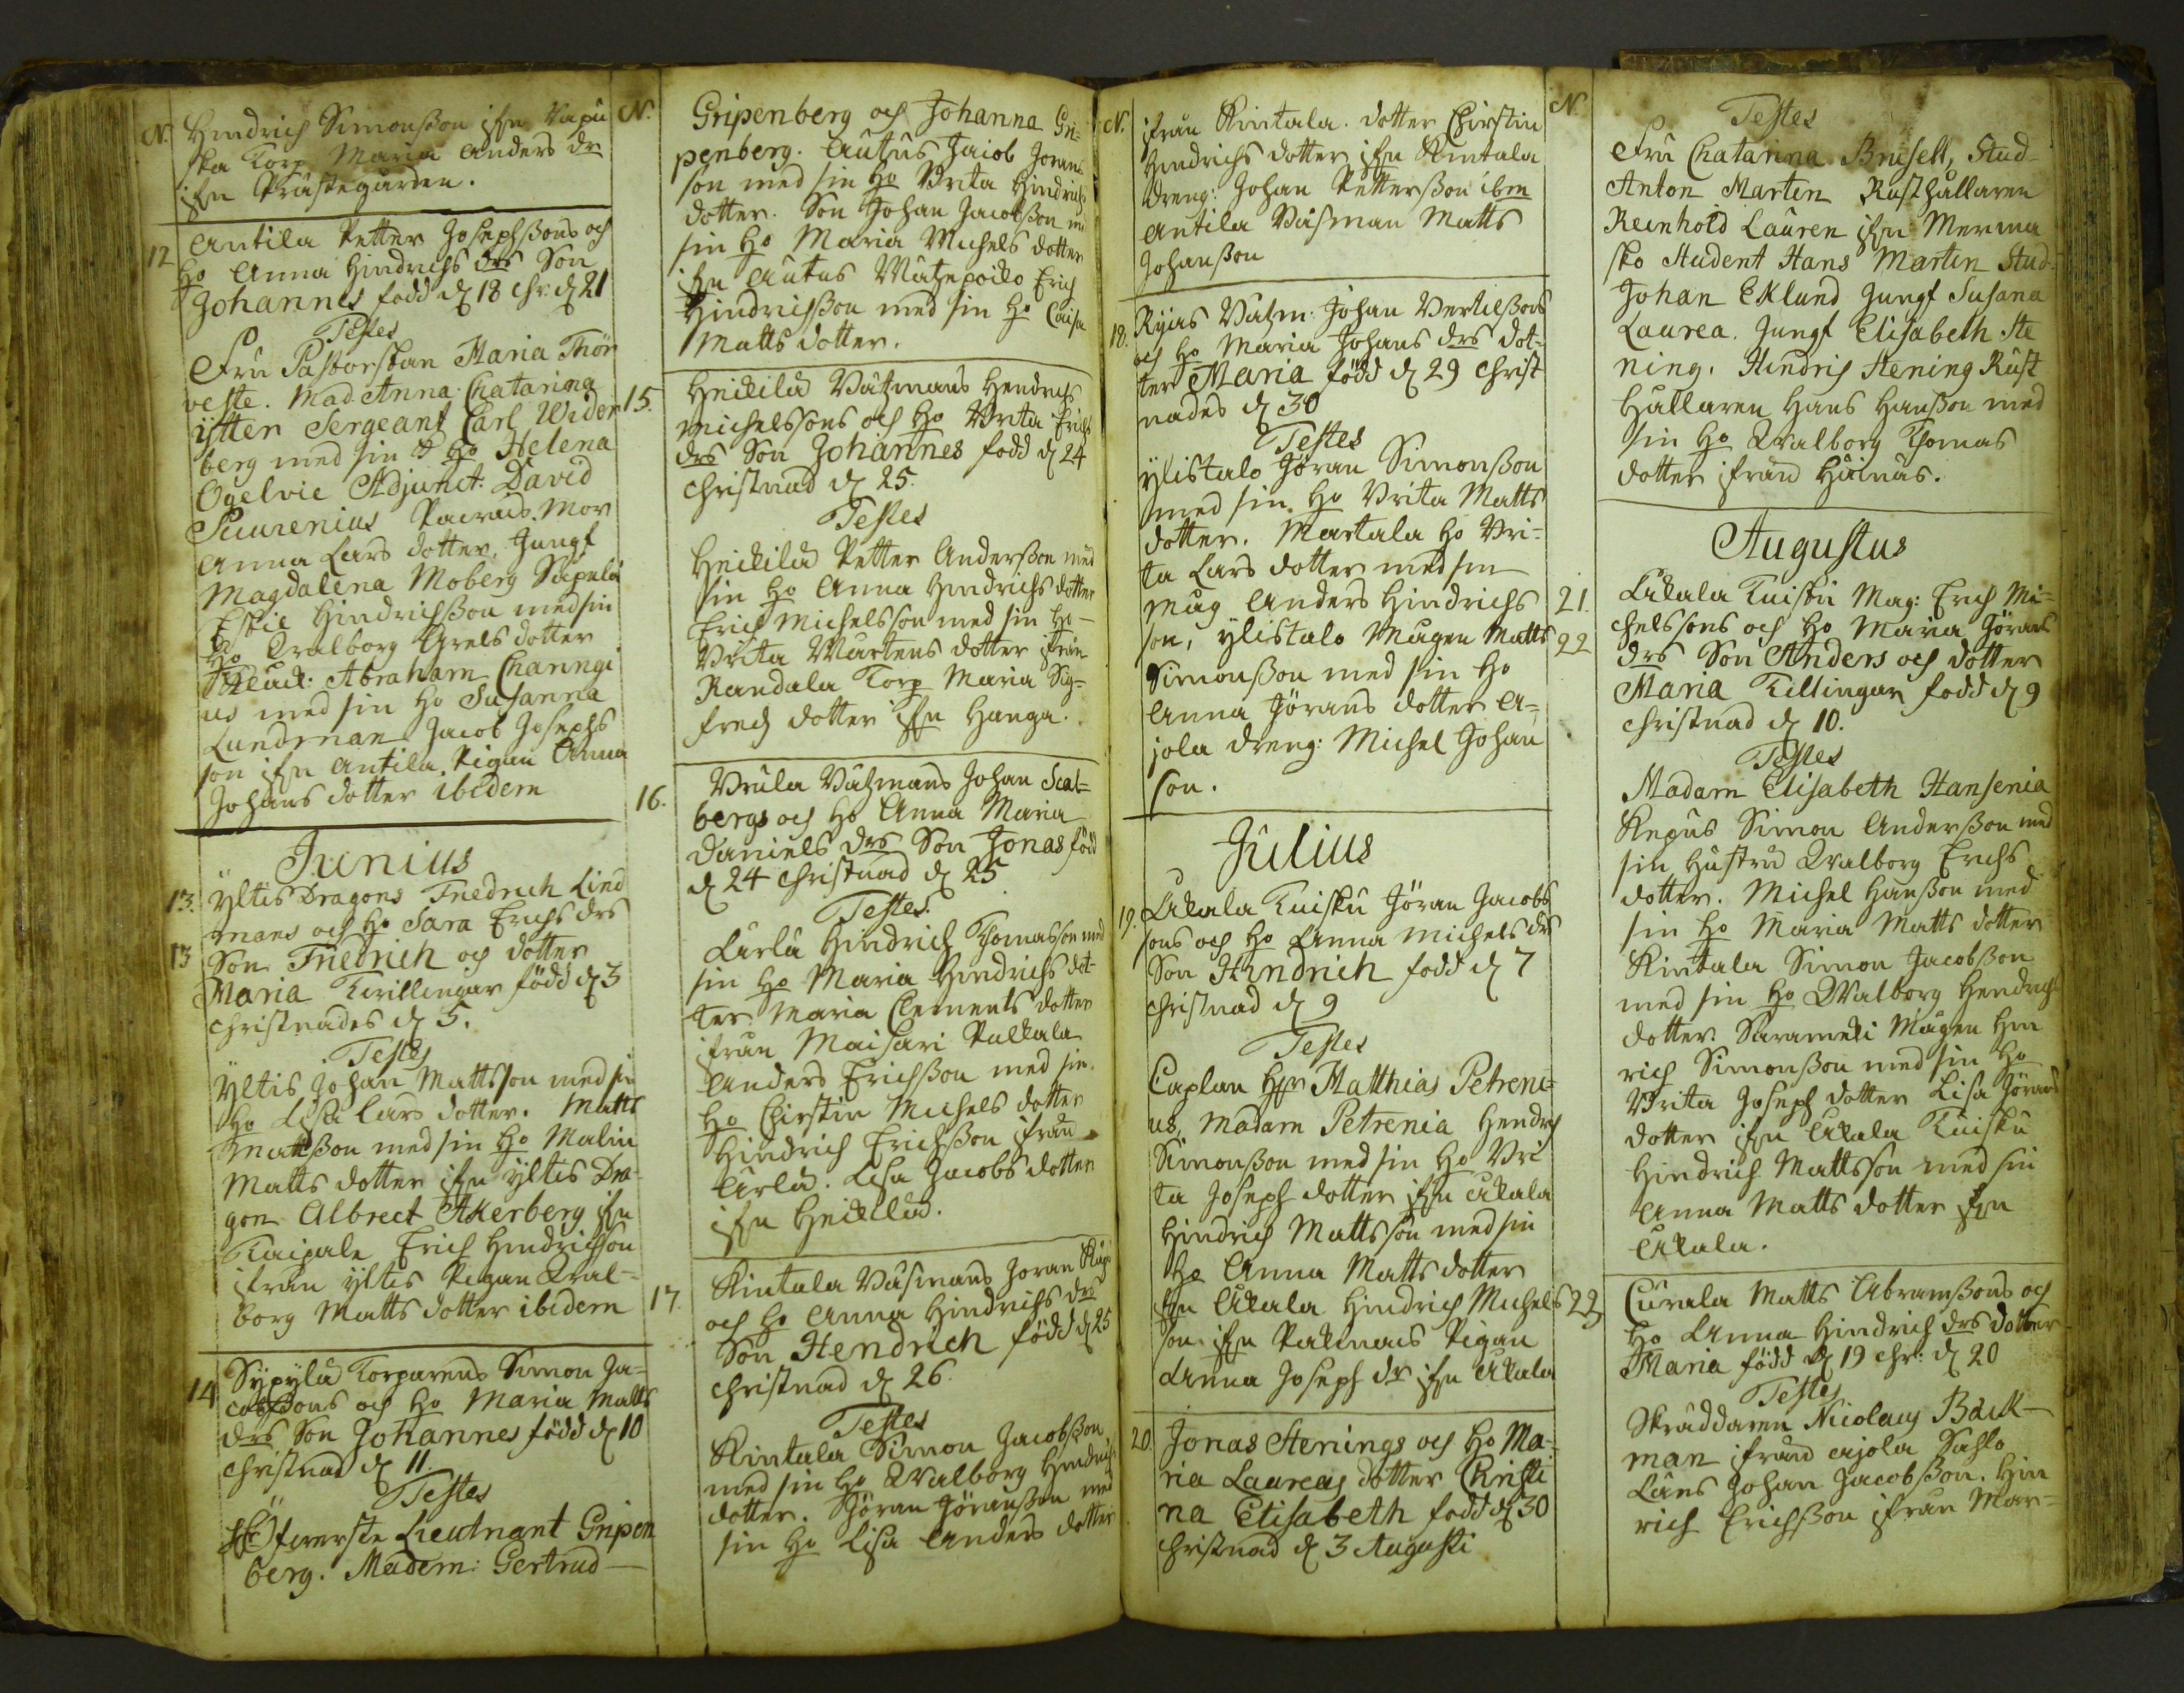 N.
Hindrich Simonsson ifrn Vapu
ska Torp Maria Anders dr
ifrn Prästegården.
12
Antila Petter Josephssons och
Ho Anna Hindrichs drs Son
Johannes född d 18 Chr. d 21
Testes
Fru Pastorskan Maria Thör
veste. Mad. Anna Chatarina
ÿtter Sergeant Carl Wider
berg med sin Ho Helena
Ogelvie Adjunct. David
Mor
Anna Lars dotter. Jungf
Magdalena Moberg Säpilä
Eskie Hindrichsson med sin
Ho Walborg Grels dotter
Abraham Charingi
us med sin Ho Susanna
Lundman Jacob Josephs
son ifrn Antila. Pigan Anna
Johans dotter ibidem
Junius
13.
Yltis Dragons Friedrich Lind
mans och Ho Sara Erichs drs
13
Son Friedrich och dotter
Maria Twillingar född d 3
Christnades d 5.
Testes
Yltis Johan Mattsson med sin
Ho Lisa Lars dotter. Matts
Mattsson med sin Ho Malin
Matts dotter ifrn Yltis Dra-
gon Albrect Åkerberg ifrn
Kaipale Erich Hindrichson
ifrån Yltis Pigan Wal-
borg Matts dotter ibidem
14
Sÿpÿlä Torparens Simon Ja-
cobssons och Ho Maria Matts
drs Son Johannes född d 10
Christnad d 11.
Testes
Öfwerste Lieutnant Gripen
berg. Madem: Gertrud
N.
Gripenberg och Johanna Gri-
penberg. Autus Jacob Jorans
son med sin Ho Brita Hindrichs
dotter. Son Johan Jacobsson med
sin Ho Maria Michels dotter
ifrn Autus Erich
Hindrichsson med sin Ho Caisa
Matts dotter.
15.
Heickilä Vätzmans Hendrichs
Michelssons och Ho Brita Erichs
drs Son Johannes född d 24
Christnad d 25.
Testes
Heickilä Petter Andersson med
sin Ho Anna Hendrichs dotter
Erich Michelsson med sin Ho
Brita Mårtens dotter ifrån
Randala Torp Maria Sig-
fredz dotter ifrn Hanga.
16.
Urula Vätzmans Johan Scat-
bergs och Ho Anna Maria
Daniels drs Son Jonas född
d 24 Christnad d 25
Testes.
Hindrich Thomasson med
sin Ho Maria Hindrichs dot-
ter. Maria Clements dotter
ifrån Maisari Pakkala
Anders Erichsson med sin
Ho Chirstin Michels dotter
Hindrich Erichsson ifrån
Lisa Jacobs dotter
ifrn Heickilä.
17.
Kintala Väsmans Joran
och Ho Anna Hindrichs dr
Son Hendrich född d 25
Christnad d 26.
Testes
Kintala Simon Jacobsson
med sin Ho Walborg Hendrichs
dotter. Jöran Jöransson med
sin Ho Lisa Anders dotter
N.
ifrån Kintala. dotter Chirstin
Hindrichs dotter ifrn Kintala
Dreng: Johan Pettersson ibm
Antila Väsman Matts
Johansson
18.
Ryias Vätzm: Johan Bertilssons
och Ho Maria Johans drs dot-
ter Maria född d 29 Christ
nades d 30
Testes
Ylistalo Jöran Simonsson
med sin Ho Brita Matts
dotter. Martala Ho Bri-
ta Lars dotter med sin
måg Anders Hindrichs
son, Ylistalo Mågen Matts
Simonsson med sin Ho
Anna Jörans dotter A-
jola dreng: Michel Johan
son.
Julius
19.
Akala Kuisku Jöran Jacobs
sons och Ho Anna Michels dr
Son Hindrich född d 7
Christnad d 9
Testes
Caplan Her Matthias Petreni-
us, Madam Petrenia Hendrich
Simonsson med sin Ho Bri
ta Joseph dotter ifrn Akala
Hindrich Mattsson med sin
Ho Anna Matts dotter
ifrn Akala Hindrich Michels
son ifrn Pigan
Anna Joseph dr ifrn Akala
20.
Jonas Stenings och Ho Ma-
ria Laureas dotter Christi
na Elisabeth född d 30
Christnad d 3 Augusti
N.
Testes
Fru Chatarina Brusell, Stud-
Anton Marten Rusthållaren
Reinhold Lauren ifrn Merma
sko Student Hans Marten Stud-
Johan Eklund Jungf Susana
Laurea. Jungf Elisabeth Ste
ning. Hindrich Stening Rust
hållaren Hans Hansson med
sin Ho Walborg Thomas
dotter ifrån
Augustus
21.
22
Akala Kuisku Mag: Erich Mi-
chelssons och Ho Maria Jörans
drs Son Anders och dotter
Maria Tillingar född d 9
Christnad d 10.
Testes
Madam Elisabeth Hansenia
Simon Andersson med
sin hustru Walborg Erichs
dotter. Michel Hansson med
sin Ho Maria Matts dotter
Kintala Simon Jacobsson
med sin Ho Walborg Hendrichs
dotter. Saramäki Mågen Hin
rich Simonsson med sin Ho
Brita Joseph dotter Lisa Jörans
dotter ifrn Akala Kuisku
Hindrich Mattsson med sin
Anna Matts dotter ifrn
Akala.
23
Curala Matts Abramssons och
Ho Anna Hindrich drs dotter
Maria född d 19 Chr: d 20
Testes
Skräddaren Nicolaus Back-
man ifrån Ajola Sahlo
Johan Jacobsson. Hin
rich Erichsson ifrån Mar-